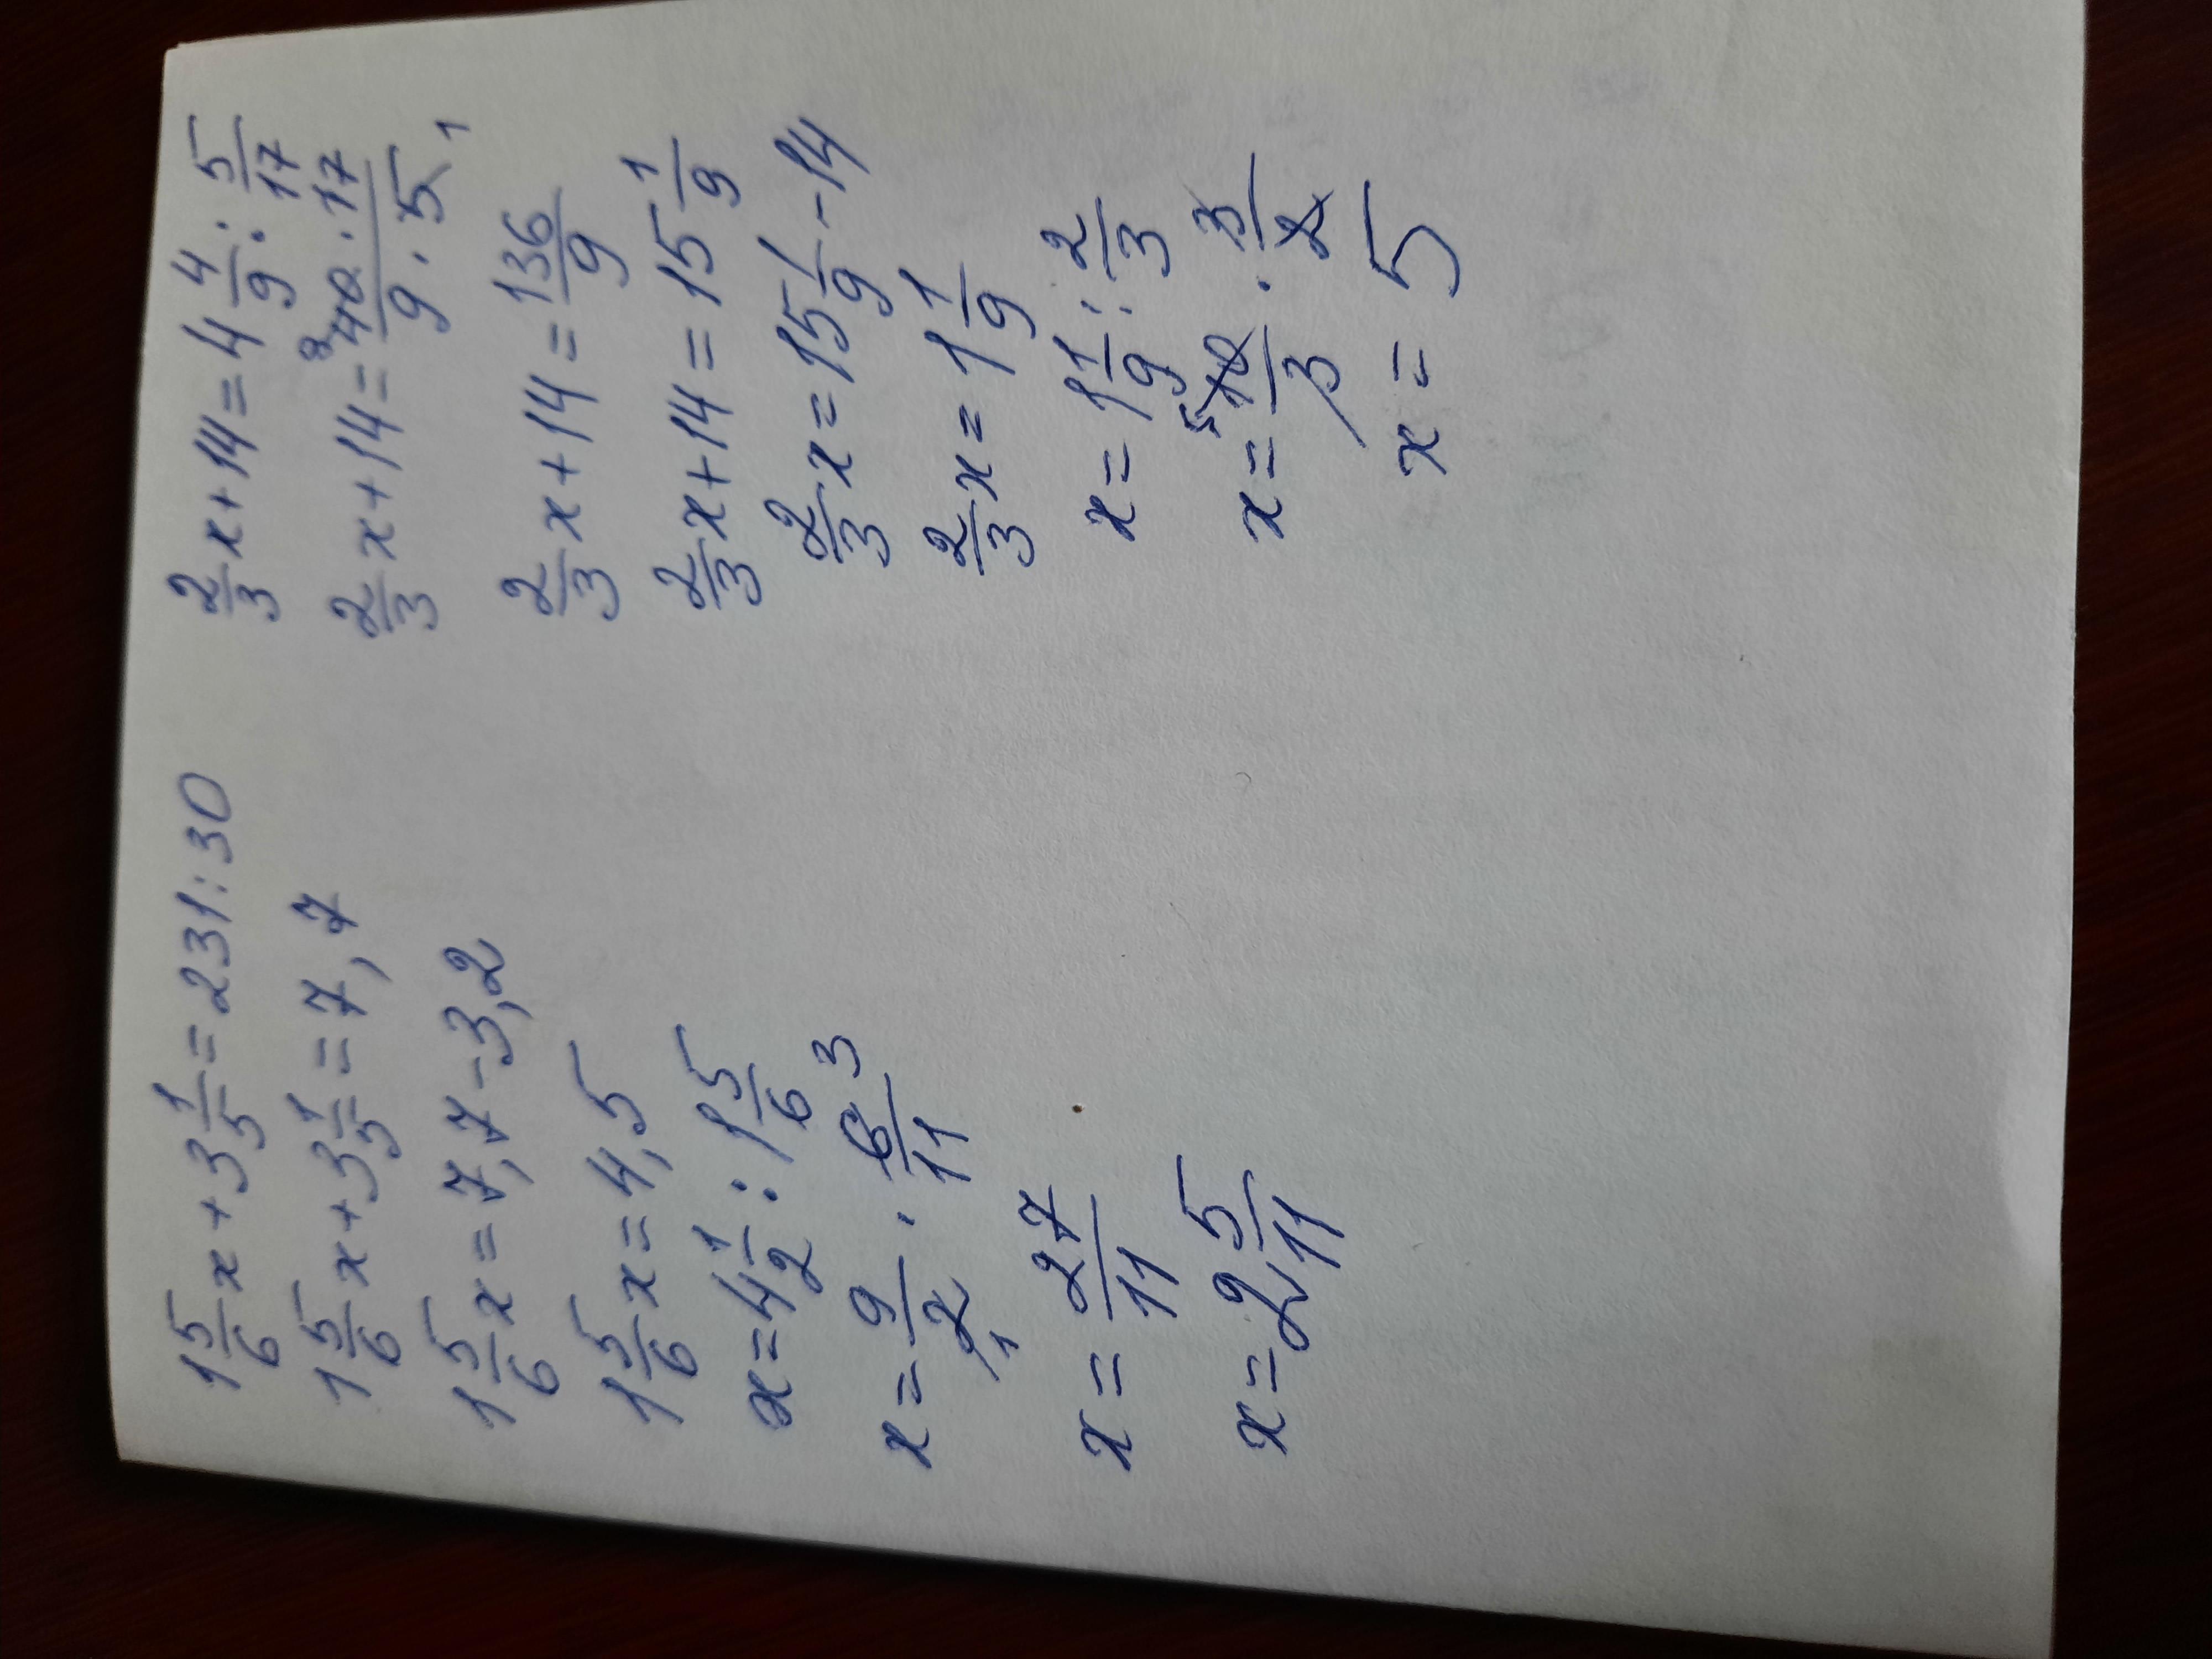 1 5/6 x + 3 1/5 = 231 : 30
1 5/6 x + 3 1/5 = 7,7
1 5/6 x = 7,7 - 3,2
1 5/6 x = 4,5
x = 4 1/2 : 1 5/6
x = 9/2 1 · 6 3/11
x = 27/11
x = 2 5/11
2/3 x + 14 = 4 4/9 : 5/17
2/3 x + 14 = 8 40 · 17/9 · 5 1
2/3 x + 14 = 136/9
2/3 x + 14 = 15 1/9
2/3 x = 15 1/9 - 14
2/3 x = 1 1/9
x = 1 1/9 : 2/3
x = 5 10/3 · 3/2
x = 5